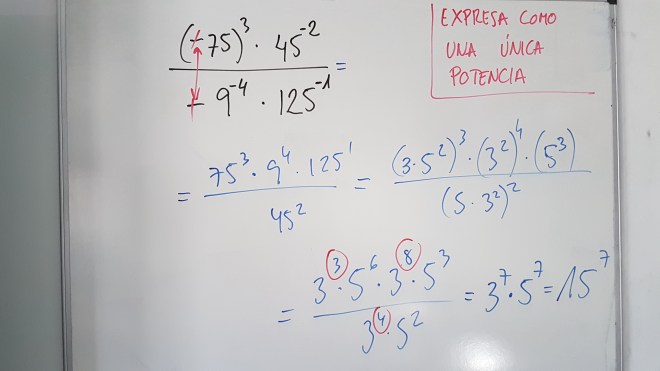 (-75)³ · 45⁻² / - 9⁻⁴ · 125⁻¹ =
EXPRESA COMO
UNA ÚNICA
POTENCIA
= 75³ · 9⁴ · 125¹ / 45² = (3·5²)³ · (3²)⁴ · (5³) / (5·3²)²
= 3³ · 5⁶ · 3⁸ · 5³ / 3⁴ · 5² = 3⁷ · 5⁷ = 15⁷